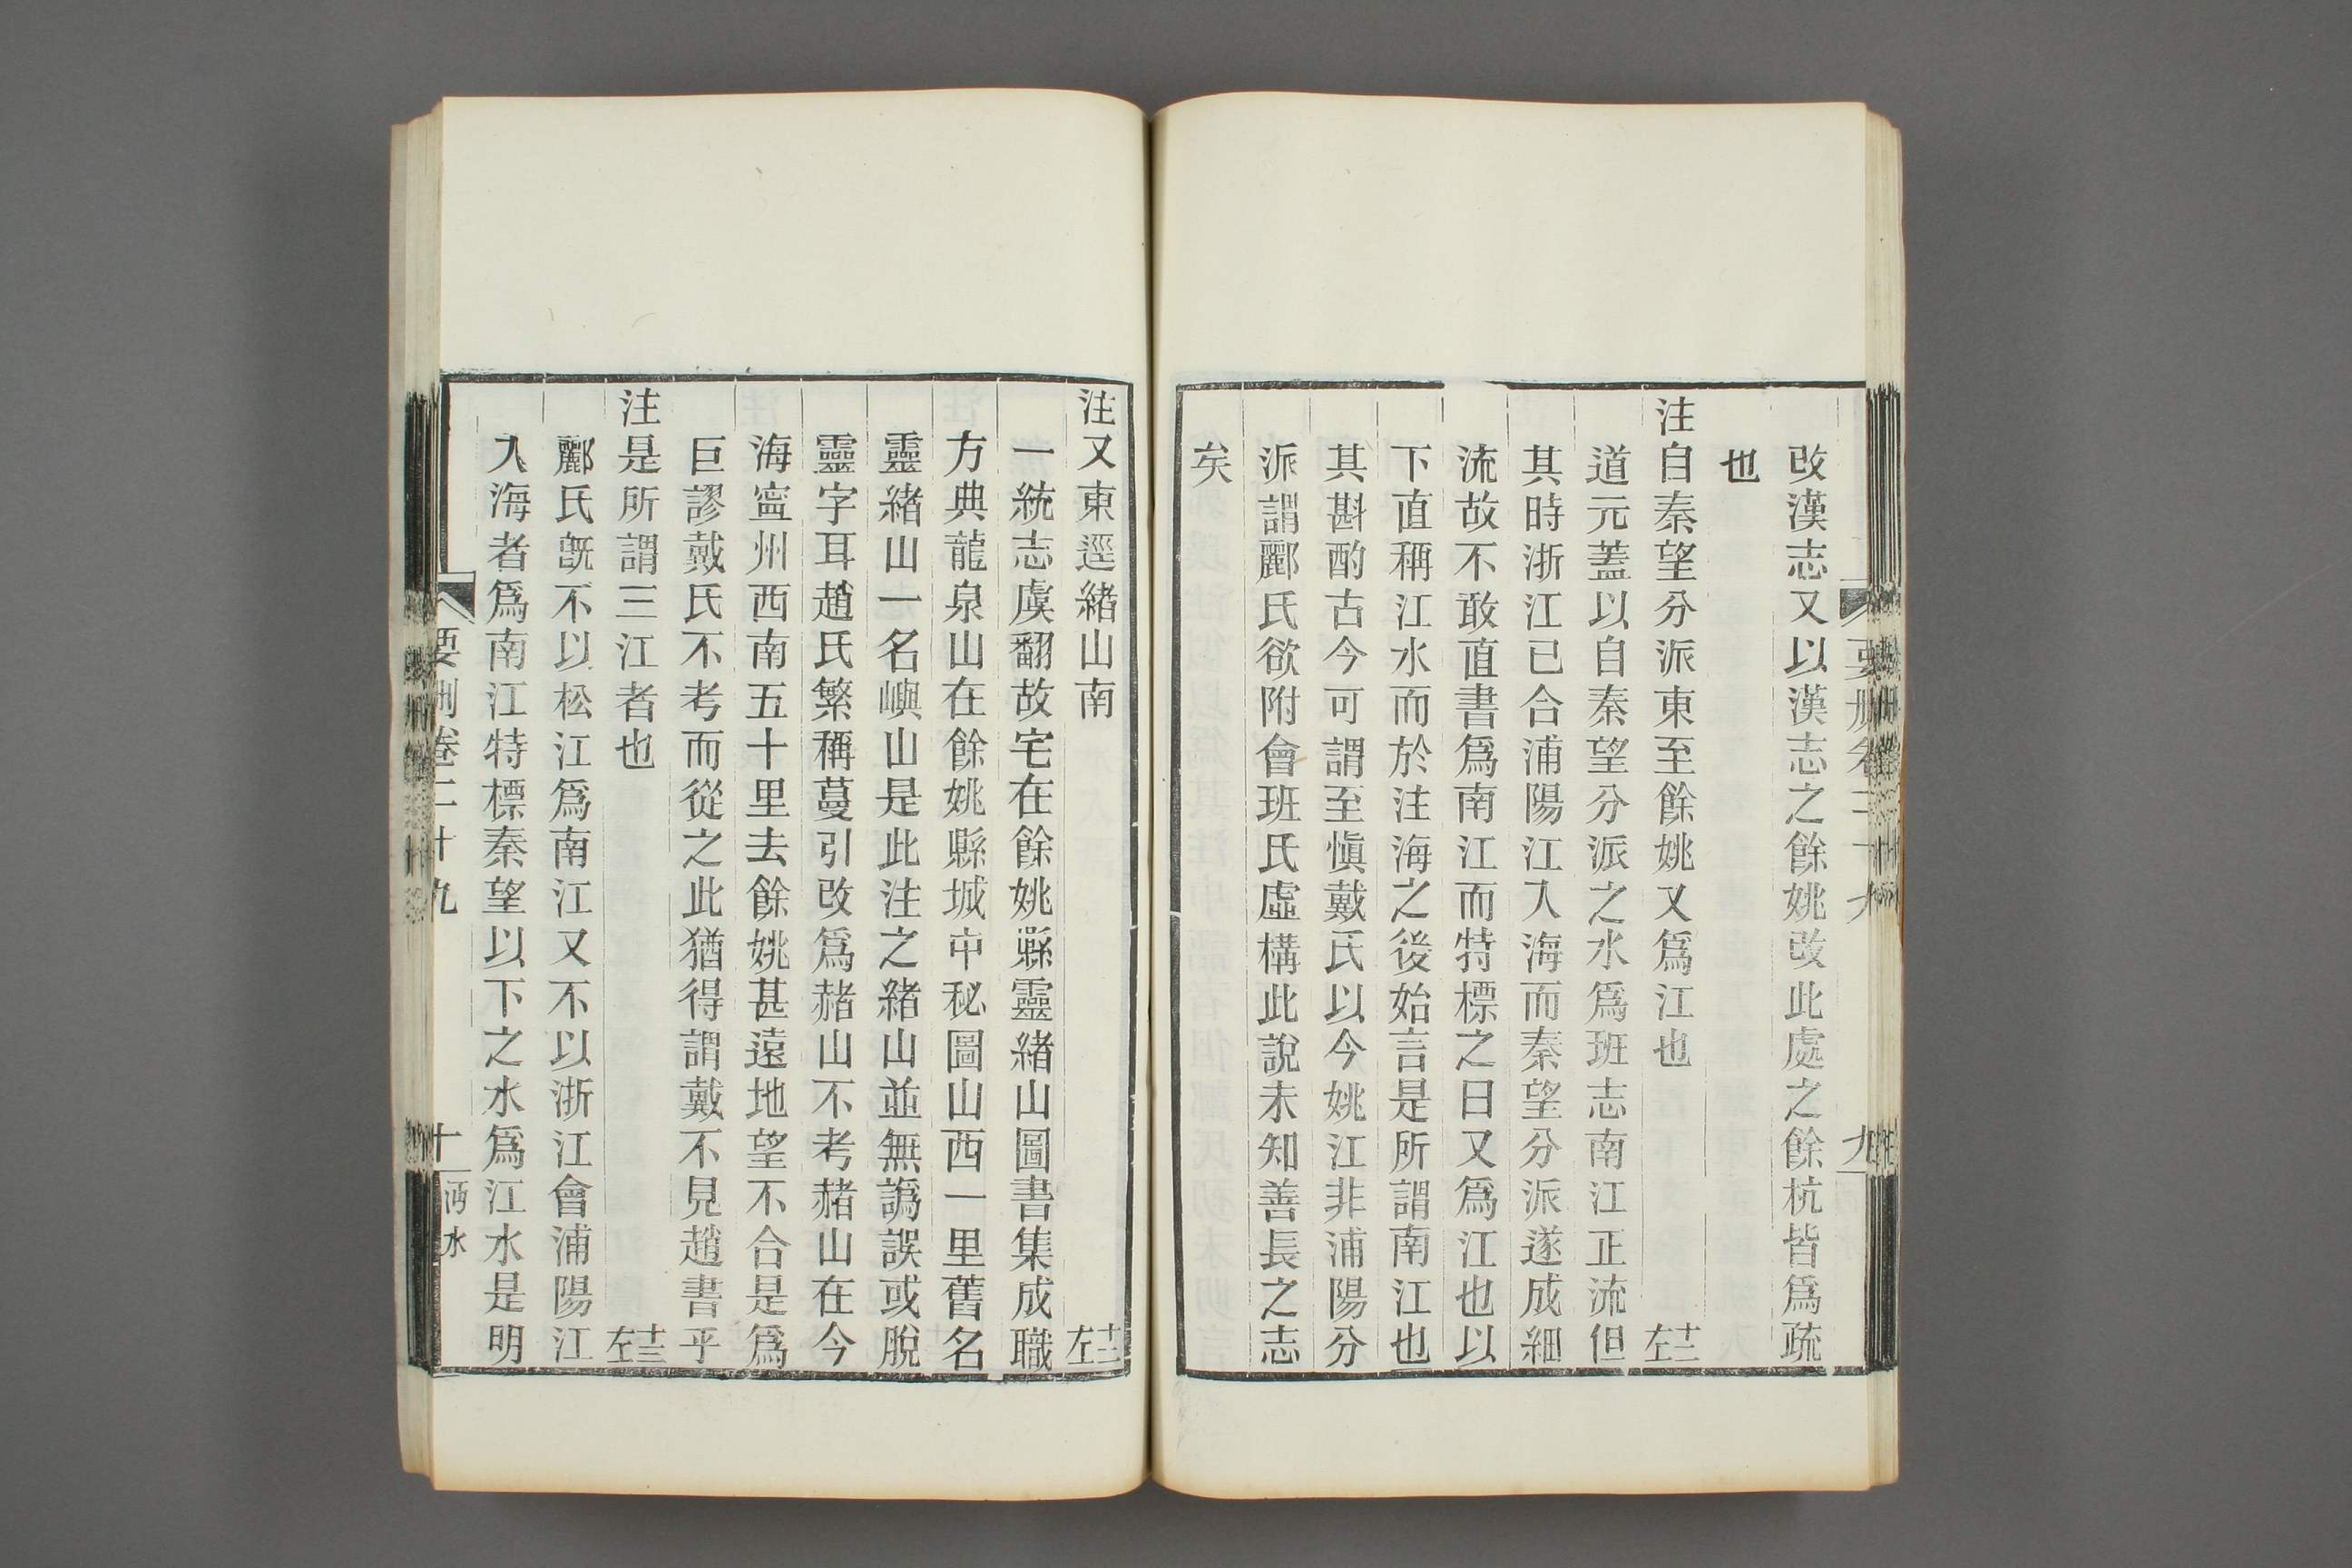 改漢志又以漢志之餘姚改此處之餘杭皆爲疏
也
注自秦望分派東至餘姚又爲江也 十二左
道元蓋以自秦望分派之水爲班志南江正流但
其時浙江已合浦陽江入海而秦望分派遂成細
流故不敢直書爲南江而特標之曰又爲江也以
下直稱江水而於注海之後始言是所謂南江也
其斟酌古今可謂至愼戴氏以今姚江非浦陽分
派謂酈氏欲附會班氏虛構此說未知善長之志
矣
注又東逕緒山南 十三左
一統志虞翻故宅在餘姚縣靈緒山圖書集成職
方典龍泉山在餘姚縣城中秘圖山西一里舊名
靈緒山一名嶼山是此注之緒山並無譌誤或脫
靈字耳趙氏繁稱蔓引改爲赭山不考赭山在今
海寧州西南五十里去餘姚甚遠地望不合是爲
巨謬戴氏不考而從之此猶得謂戴不見趙書乎
注是所謂三江者也 十三左
酈氏旣不以松江爲南江又不以浙江會浦陽江
入海者爲南江特標秦望以下之水爲江水是明
要刪卷二十九 十 沔水